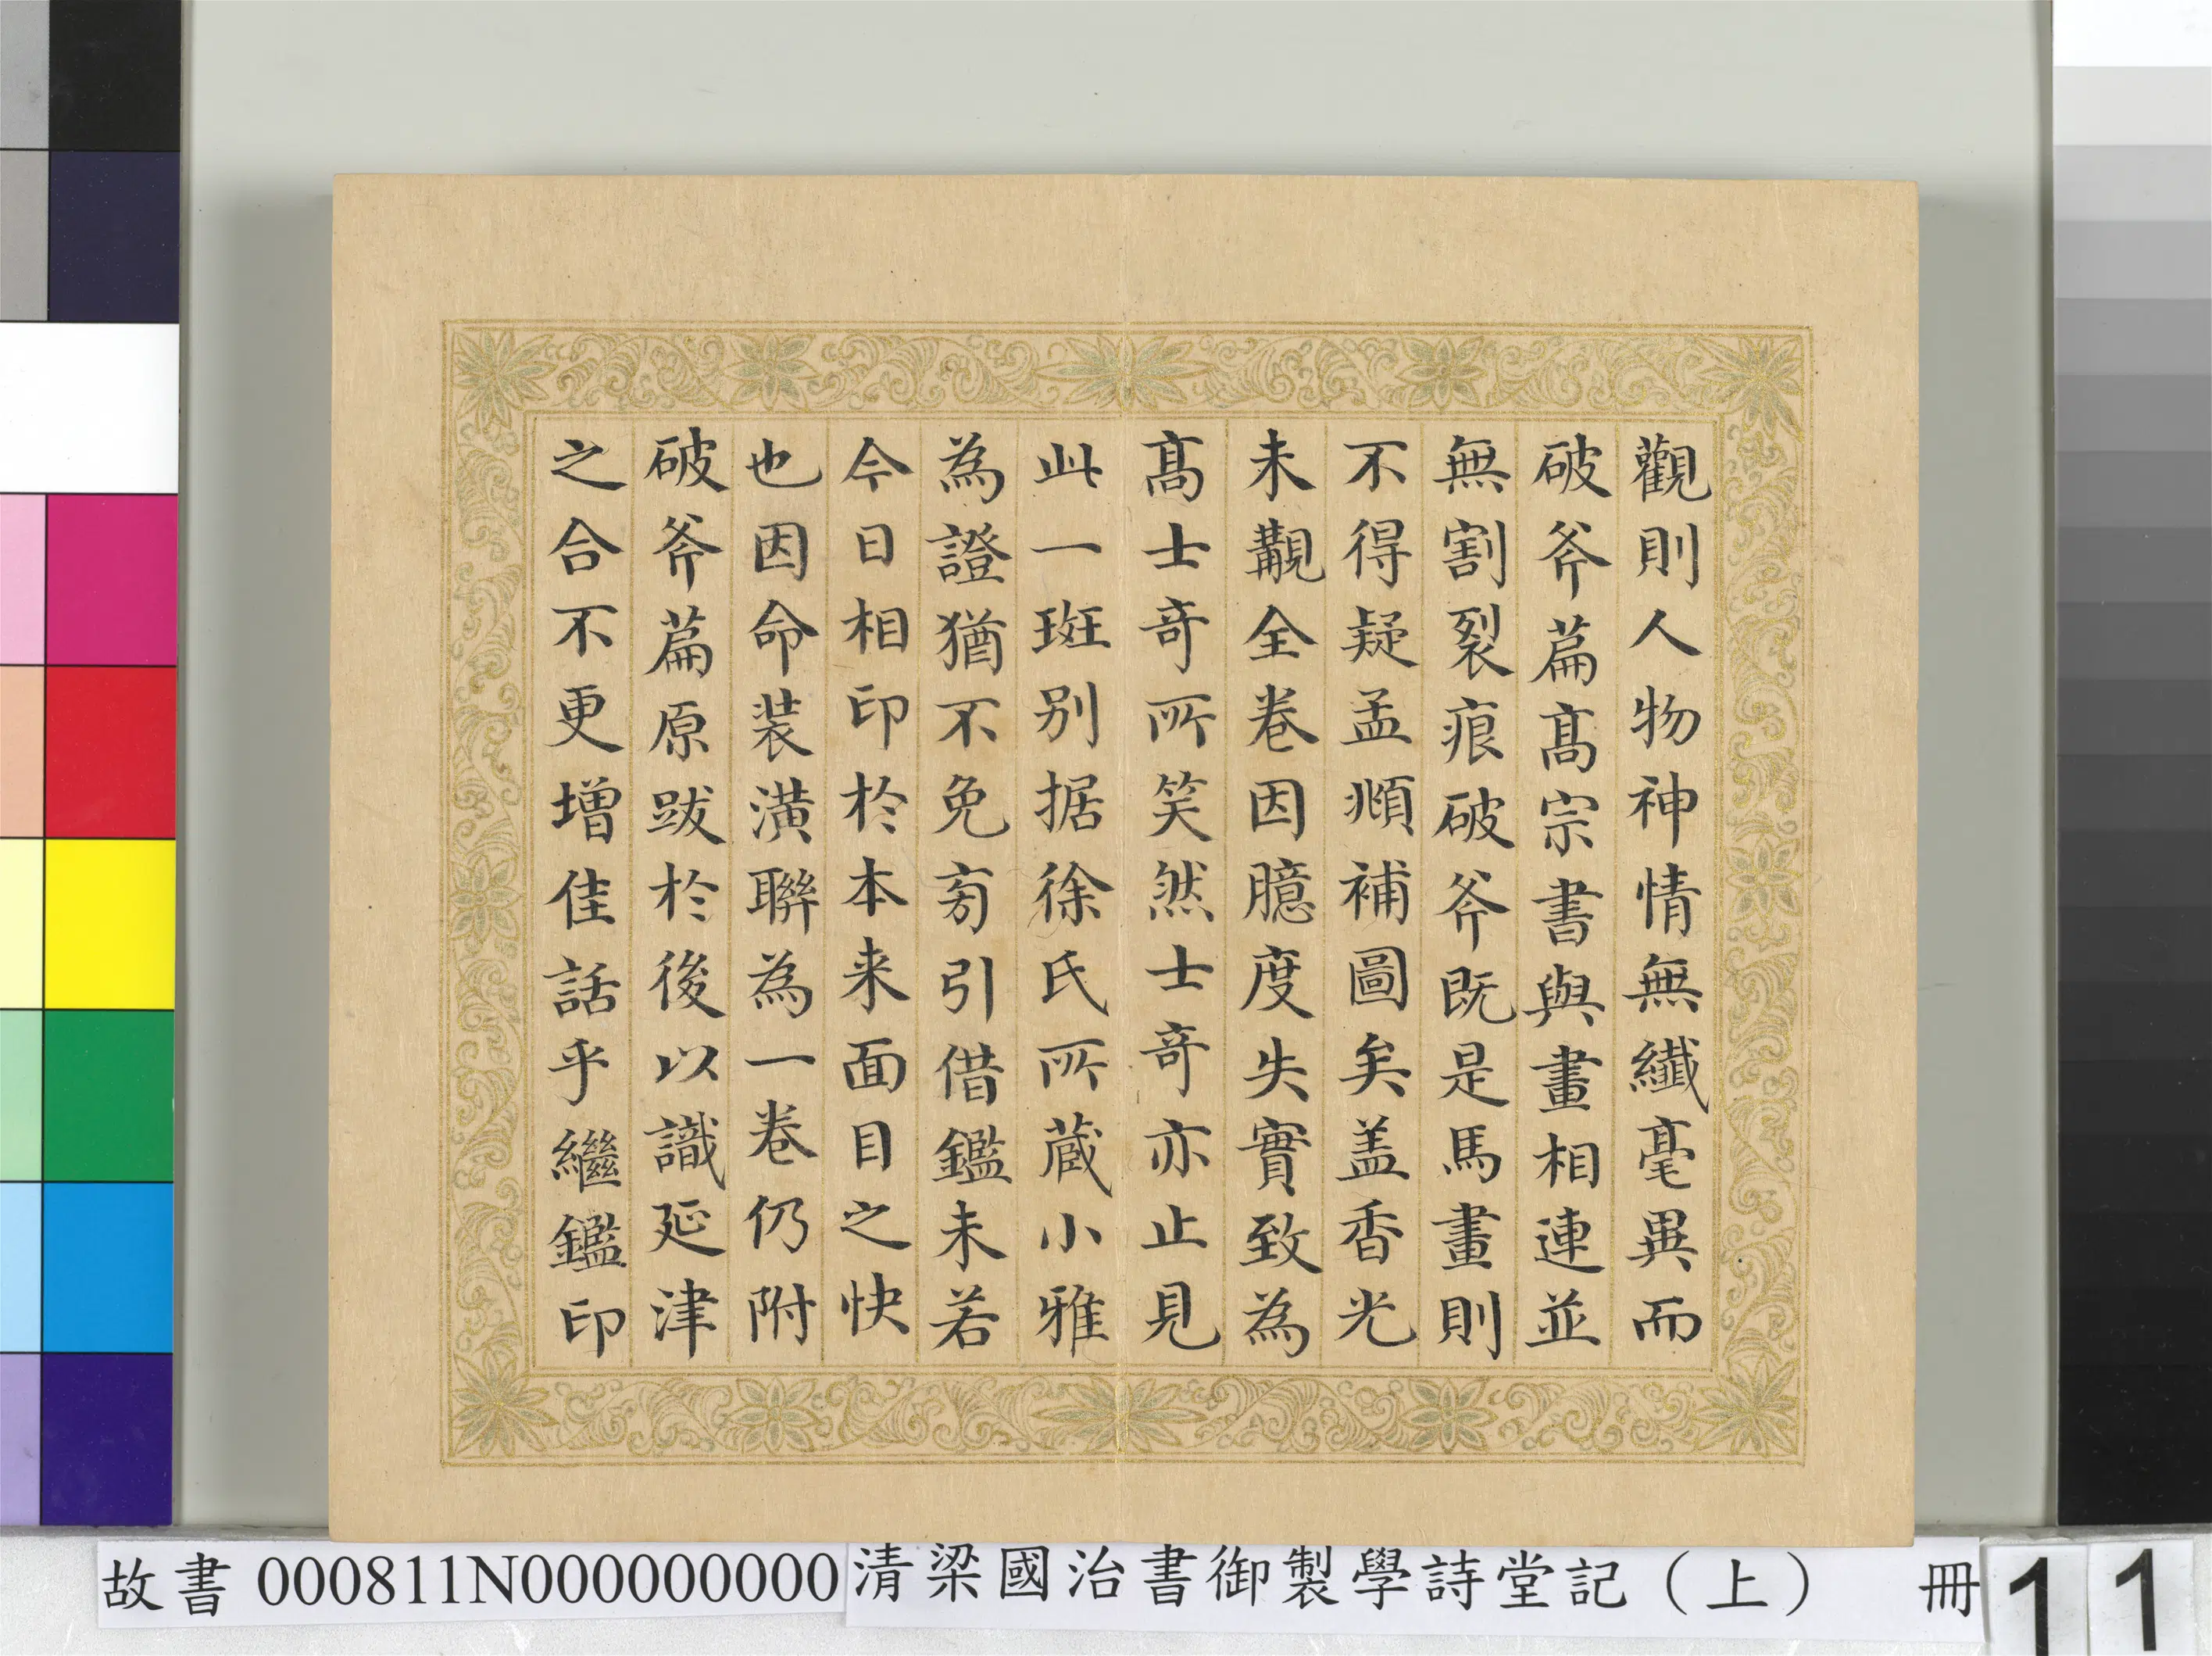 觀則人物神情無纖毫異而
破斧篇髙宗書與畫相連並
無割裂痕破斧既是馬畫則
不得疑孟頫補圖矣盖香光
未覯全卷因臆度失實致為
髙士竒所笑然士竒亦止見
此一斑别据徐氏所蔵小雅
為證猶不免旁引借鑑未若
今日相印於本来面目之快
也因命装潢聨為一卷仍附
破斧篇原跋於後以識延津
之合不更増佳話乎繼鑑印
故書 000811N000000000 清梁國治書御製學詩堂記（上） 冊 1 1